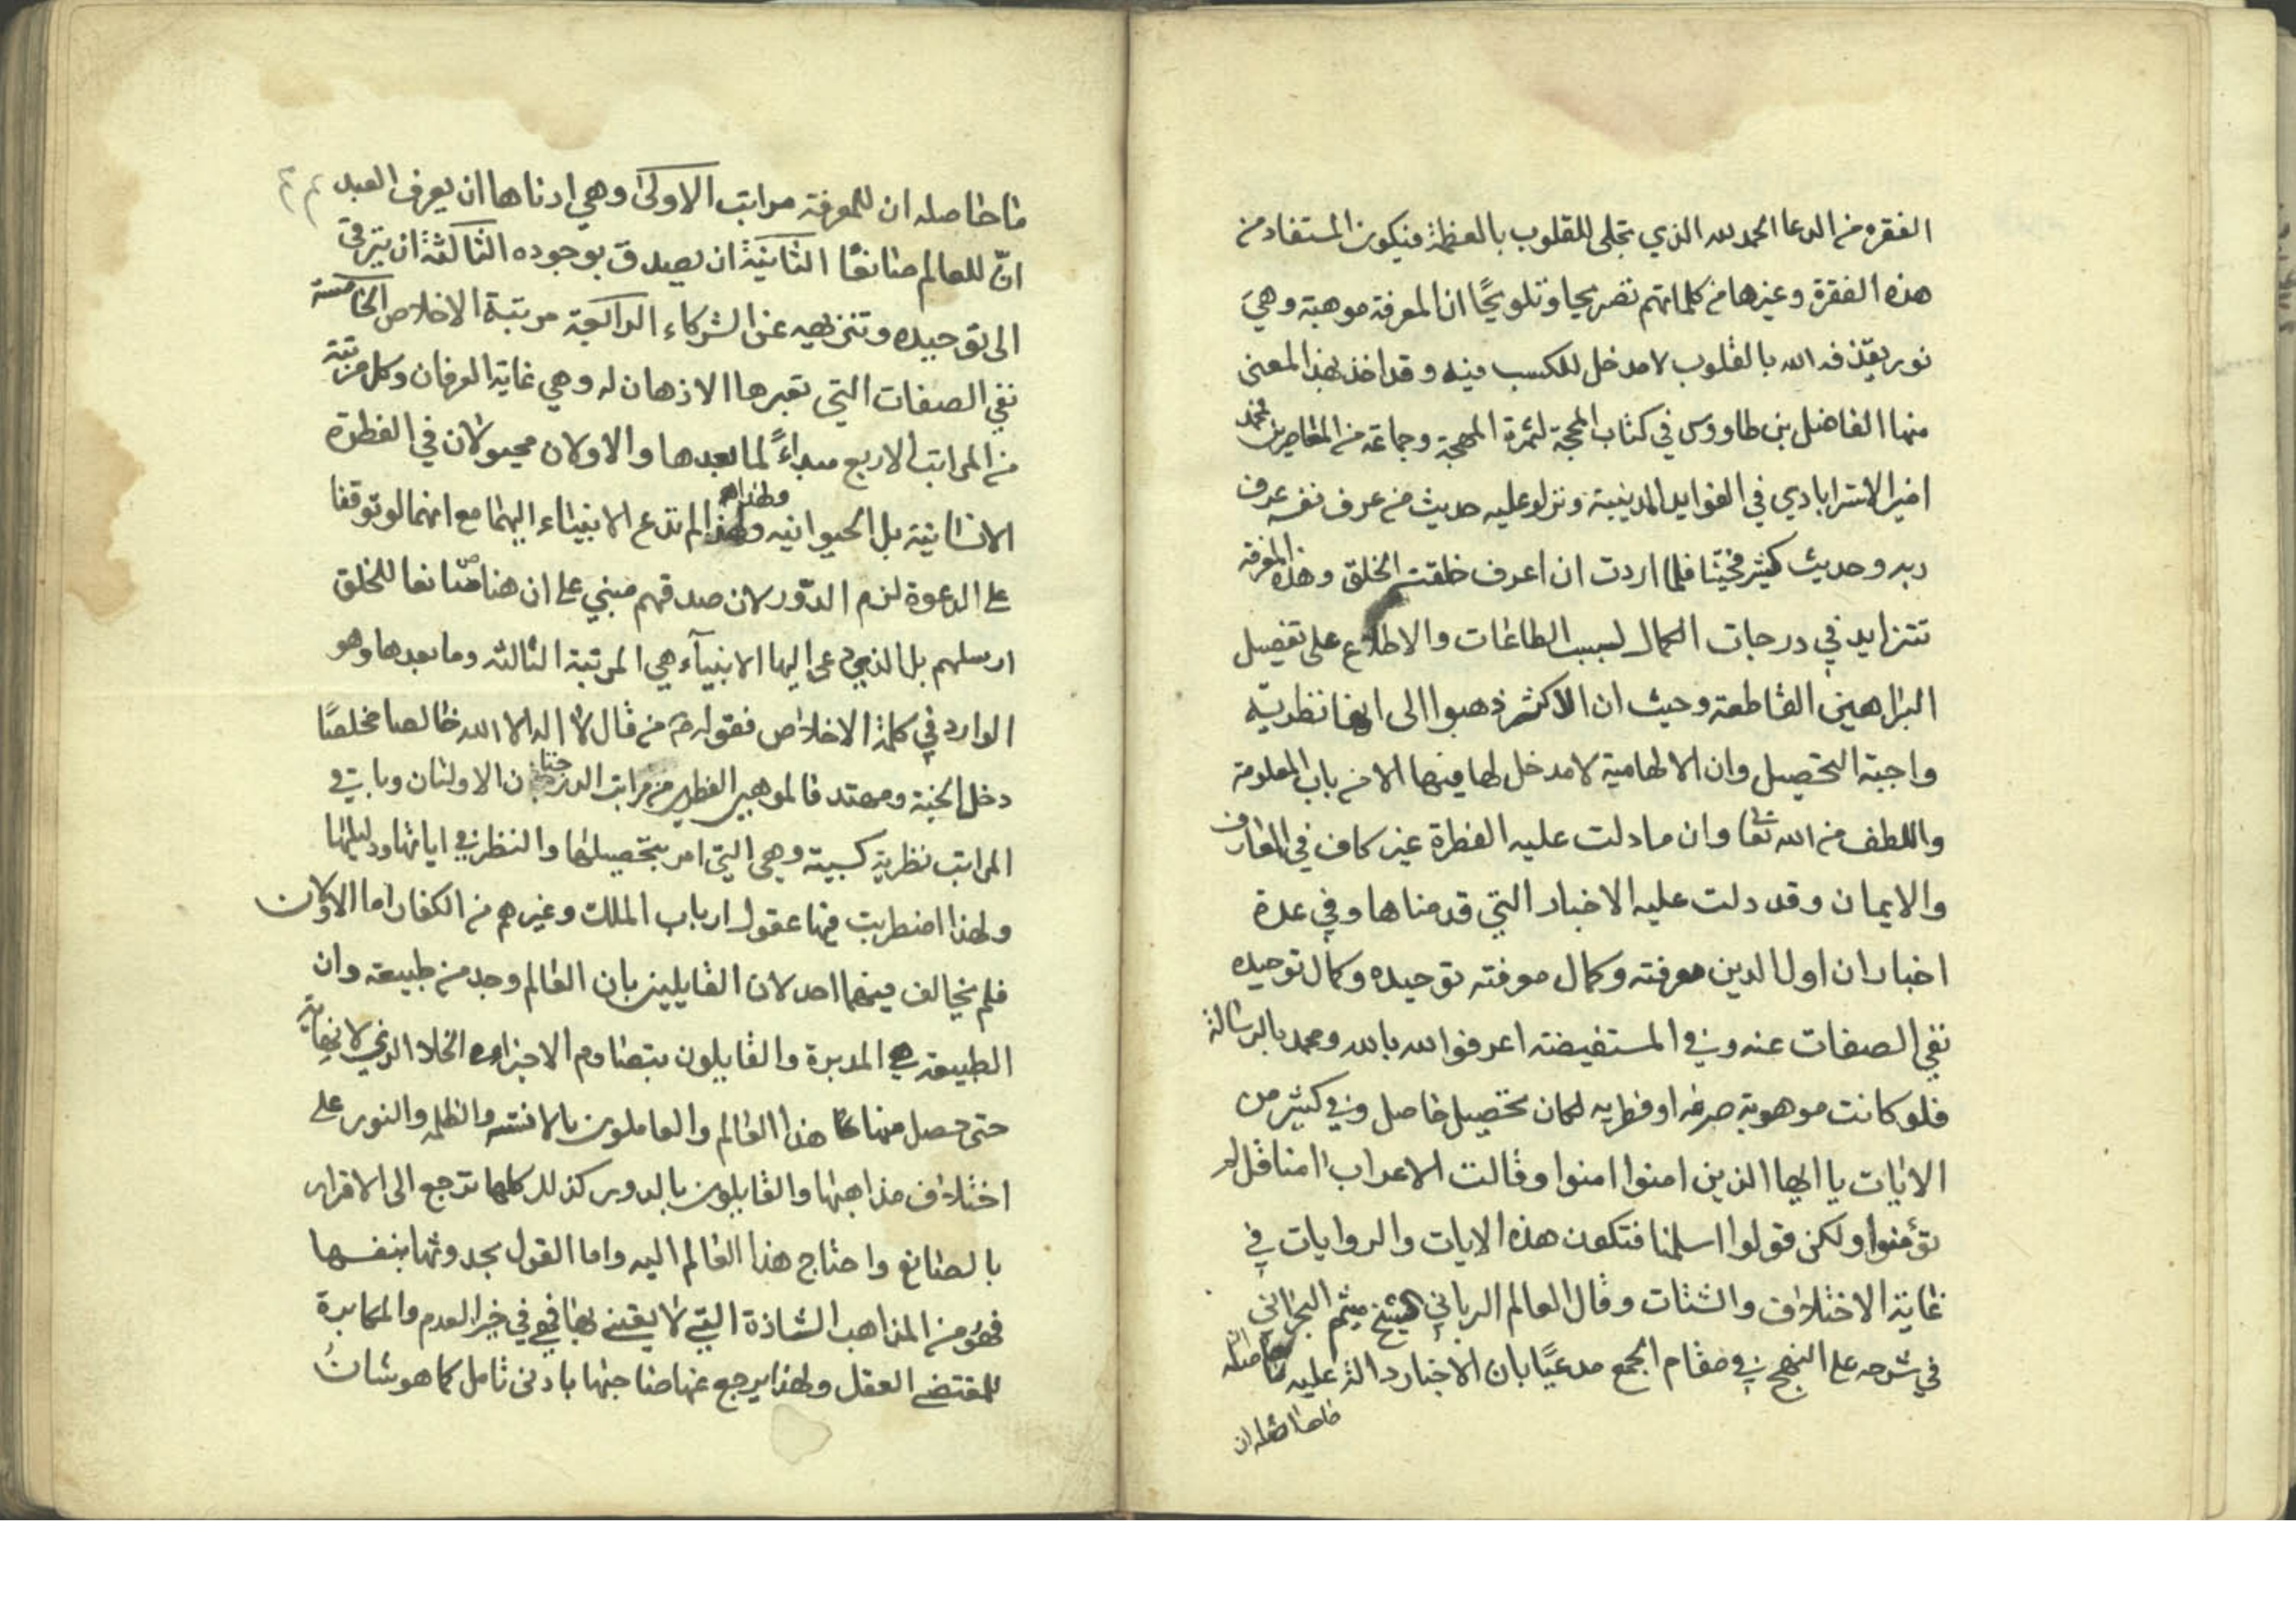 الفقره من الدعا الحمد لله الذي تجلى للقلوب بالعظمة فيكون المستفاد من
هذه الفقرة وغيرها من كلماتهم تصريحا وتلويحًا ان المعرفة موهبة وهي
نور يقذفه الله بالقلوب لا مدخل للكسب فيه وقد اخذ بهذا المعنى
منها الفاضل بن طاووس في كتاب المحجة لثمرة المهجة وجماعة من المعاصرين محمد
امين الاسترابادي في الفوايد المدينية ونزلو عليه حديث من عرف نفسه عرف
ربه وحديث كنت كنزا مخفيا فلما اردت ان اعرف خلقت الخلق وهذه المعرفة
تتزايد في درجات الكمال لسبب الطاعات والاطلاع على تفصيل
البراهين القاطعة وحيث ان الاكثر ذهبوا الى انها نظريّة
واجبة التحصيل وان الالهامية لا مدخل لها فيها الا من باب المعلومة
واللطف من الله تعا وان ما دلت عليه الفطرة غير كاف في المعارف
والايمان وقد دلت عليه الاخبار التي قدمناها وفي عدة
اخبار ان اول الدين معرفته وكمال معرفته توحيده وكمال توحيده
نفي الصفات عنه وفي المستفيضة اعرفوا الله بالله ومحمد بالرسالة
فلو كانت موهوبة صرفه او فطريه لكان تحصيل حاصل وفي كثير من
الايات يا ايها الذين امنوا امنوا وقالت الاعراب امنا قل لم
تؤمنوا ولكن قولوا اسلمنا فتكون هذه الايات والروايات في
غاية الاختلاف والشتات وقال العالم الرباني الشيخ ميثم البحراني
في شرحه على النهج في مقام الجمع مدعيًا بان الاخبار دالة عليه ما حاصله
ما حاصله ان
ما حاصله ان للمعرفة مراتب الاولى وهي ادناها ان يعرف العبد
انّ للعالم صانعًا الثانية ان يصدق بوجوده الثالثة ان يترقى
الى توحيده وتنزيهه عن الشركاء الرابعة مرتبة الاخلاص الخامسة
نفي الصفات التي تعبرها الاذهان له وهي غاية العرفان وكل مرتبة
من المراتب الاربع مبداءً لما بعدها والاولان مجبولان في الفطرة
الانسانية بل الحيوانيه ولهذا لم تدع الانبياء اليهما مع انهما لو توقفا
على الدعوة لزم الدّور لان صدقهم مبني على ان هنا صانعا للخلق
ارسلهم بل الذي دعى اليها الانبيآء هي المرتبة الثالثه وما بعدها وهو
الوارد في كلمة الاخلاص فقوله ص من قال لا اله الا الله خالصا مخلصًا
دخل الجنة ومهتد فالموهبي الفطري من مراتب الدرجتان الاولتان وباقي
المراتب نظرية كسبية وهي التي امر بتحصيلها والنظر في اياتها ودليلها
ولهذا اضطربت فيها عقول ارباب الملل وغيرهم من الكفار اما الاولان
فلم يخالف فيهما احد لان القايلين بان العالم وجد من طبيعة وان
الطبيعة هي المدبرة والقايلون بتصادم الاجزاء في الخلاء الذي لا نهاية
حتى حصل منها هذا العالم والعاملون بالاثنينية والظلمه والنور على
اختلاف مذاهبها والقايلون بالدور كذلك كلها ترجع الى الاقرار
بالصانع واحتاج هذا العالم اليه واما القول بحدوثها بنفسها
فهو من المذاهب الشاذة التي لا يعتنى بها فهي في خبر العدم والمكابرة
للمقتضى العقل ولهذا يرجع عنها صاحبها بادنى تامل كما هو شان